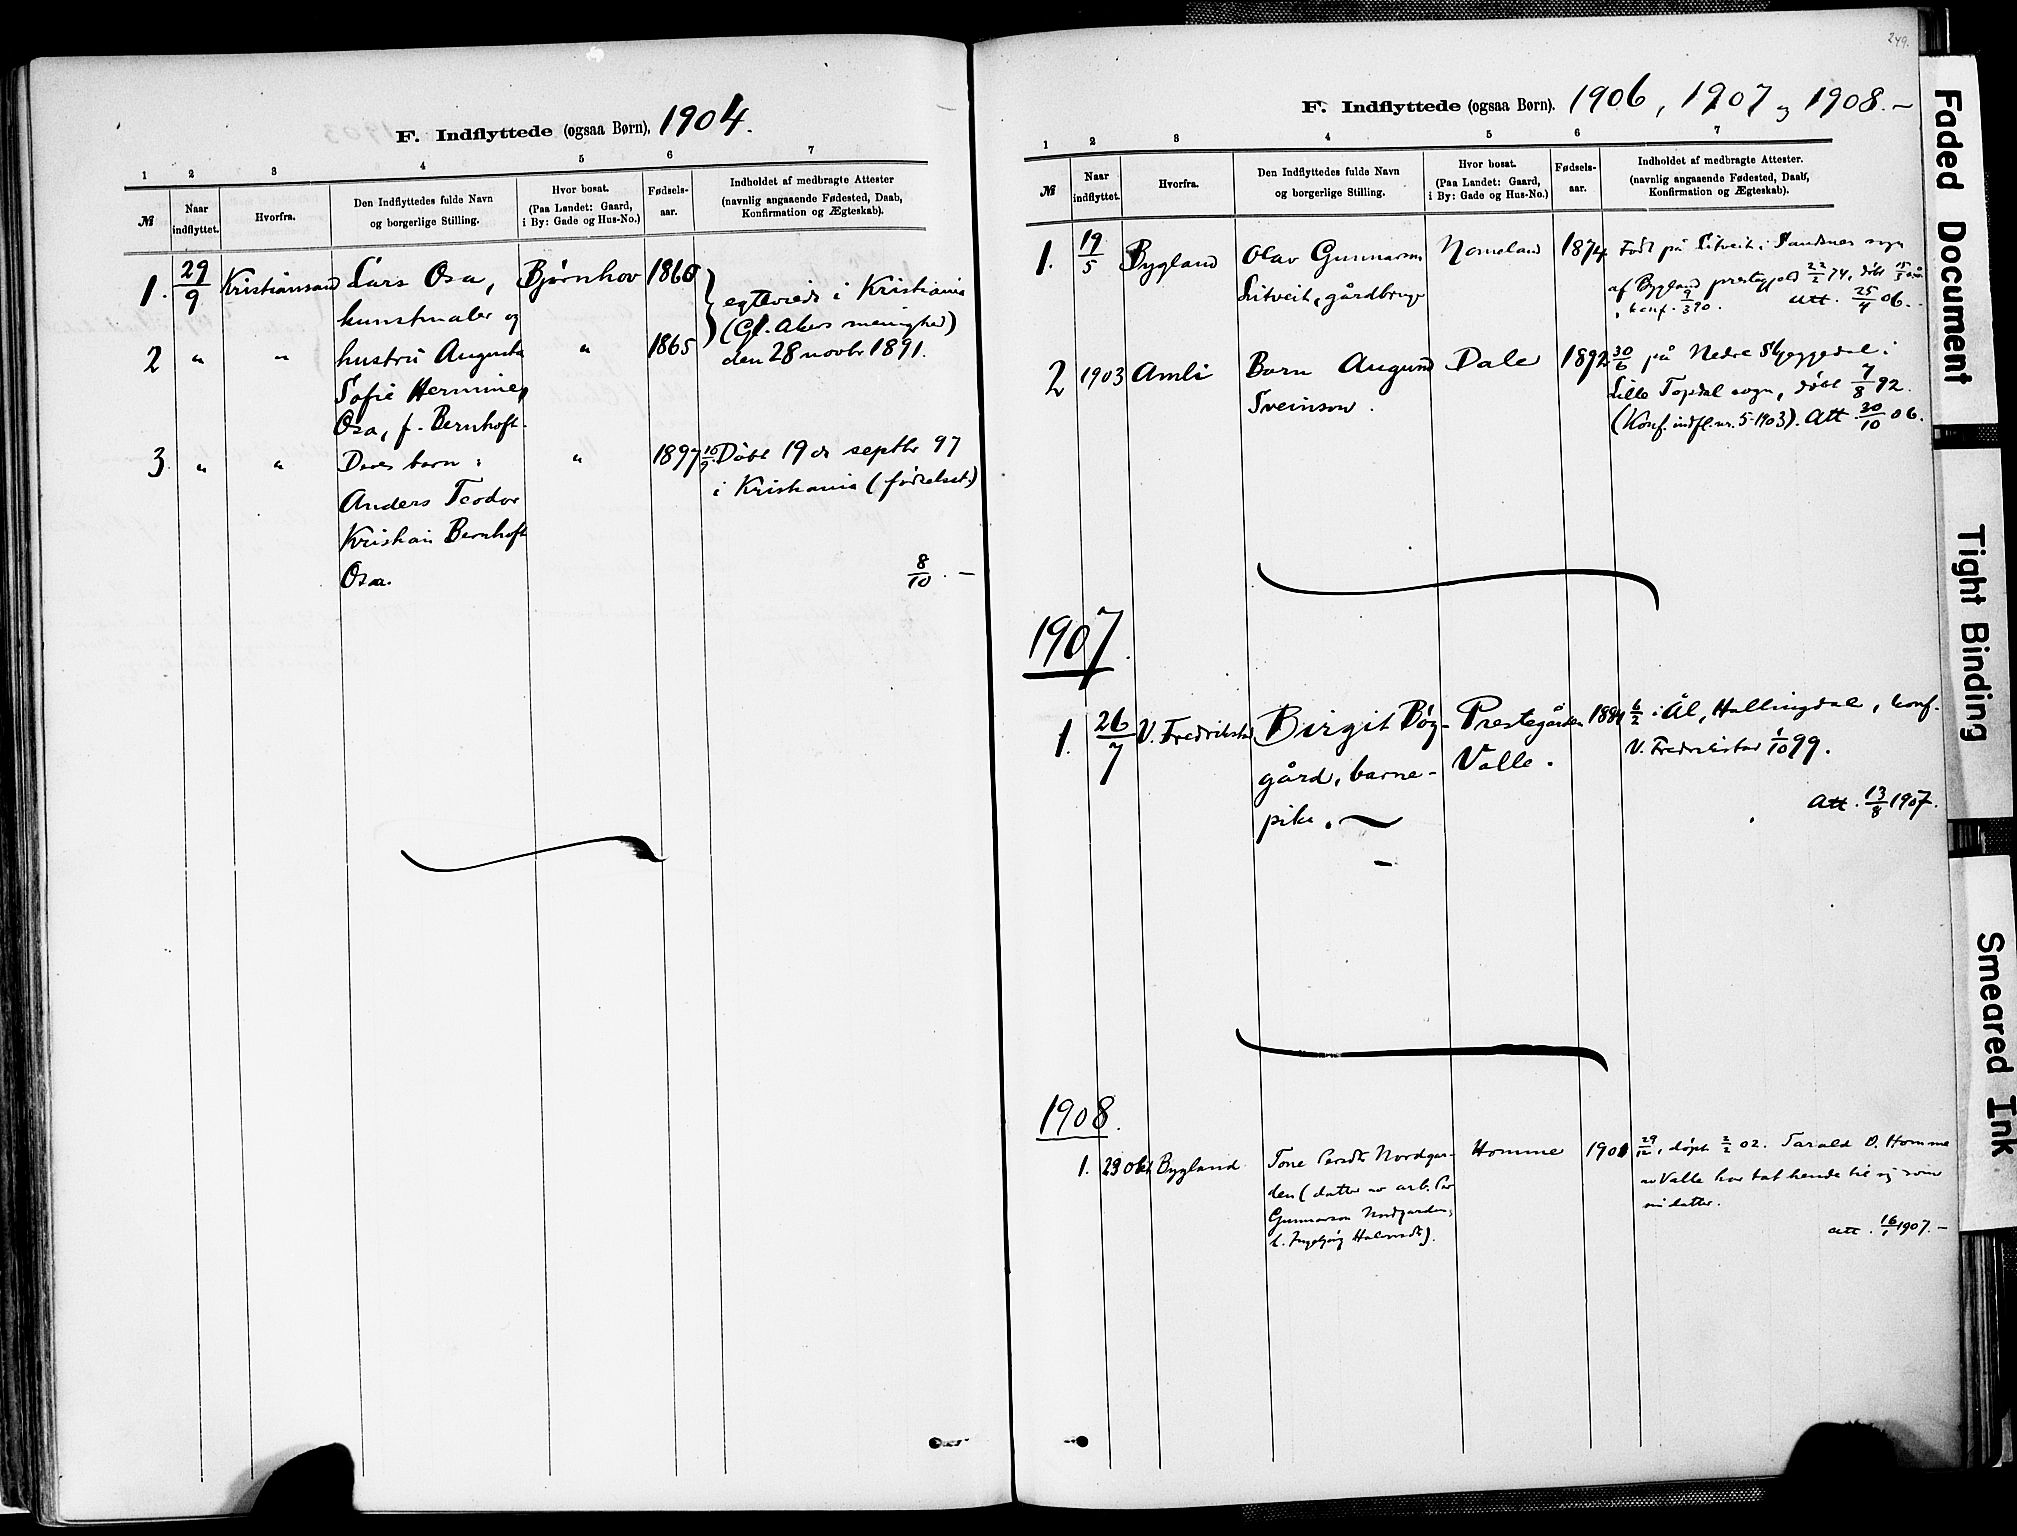 F. Indflyttede (ogsaa Børn). 1904.
1 2 3 4 5 6 7
№
Naar indflyttet.
Hvorfra.
Den Indflyttedes fulde Navn
og borgerlige Stilling.
Hvor bosat.
(Paa Landet: Gaard,
i By: Gade og Hus-No.)
Fødsels-
aar.
Indholdet af medbragte Attester
(navnlig angaaende Fødested, Daab,
Konfirmation og Ægteskab).
1. 29/9 Kristiansand Lars Osa, Bjørnhov 1860
kunstmaler og
egteviede i Kristiania
(Gl. Akers menighed)
2 " " hustru Augusta " 1865 den 28 novbr 1891.
Sofie Hermine
Osa, f. Bernhoft.
3 " " Deres barn: " 1897 10/9 Døbt 19de septbr 97
Anders Teodor i Kristiania (fødselsst.)
Kristian Bernhoft
Osa. 8/10. —
249.
F. Indflyttede (ogsaa Børn). 1906, 1907 og 1908. —
1 2 3 4 5 6 7
№
Naar
indflyttet.
Hvorfra.
Den Indflyttedes fulde Navn
og borgerlige Stilling.
Hvor bosat.
(Paa Landet: Gaard,
i By: Gade og Hus-No.)
Fødsels-
aar.
Indholdet af medbragte Attester.
(navnlig angaaende Fødested, Daab,
Konfirmation og Ægteskab).
1. 19/5 Bygland Olav Gunnarson Nomeland 1874. Født på Litveit i Sandnes sogn
Litveit, gårdbruger af Bygland prestegjeld 22/2 74, døbt 15/3 s. år.
, konf. 9/3 90. Att. 25/4 06.
2 1903 Amli Barn Augund Dale 1892 30/6 på Nedre Skjeggedal i
Sveinson. Lille Topdal sogn, døbt 7/8 92.
(Konf. indfl. nr. 5-1903). Att 30/10 06.
1907.
1. 26/7 V. Fredrikstad Birgit Bøy- Prestegården 1884 6/2 i Ål, Hallingdal, konf.
gård, barne- Valle. V. Fredrikstad 1/10 99.
pike. Att. 13/8 1907.
1908.
1. 29 okt Bygland Tone Nordgar- Homme 1901 29/12, døpt 2/2 02. Tarald O. Homme
den (datter av arb. av Valle har tat hende til sig som
Gunnarson Nordgarden, sin datter.
Att. 16/1 1907. —
Faded Document
Tight Binding
Smeared Ink